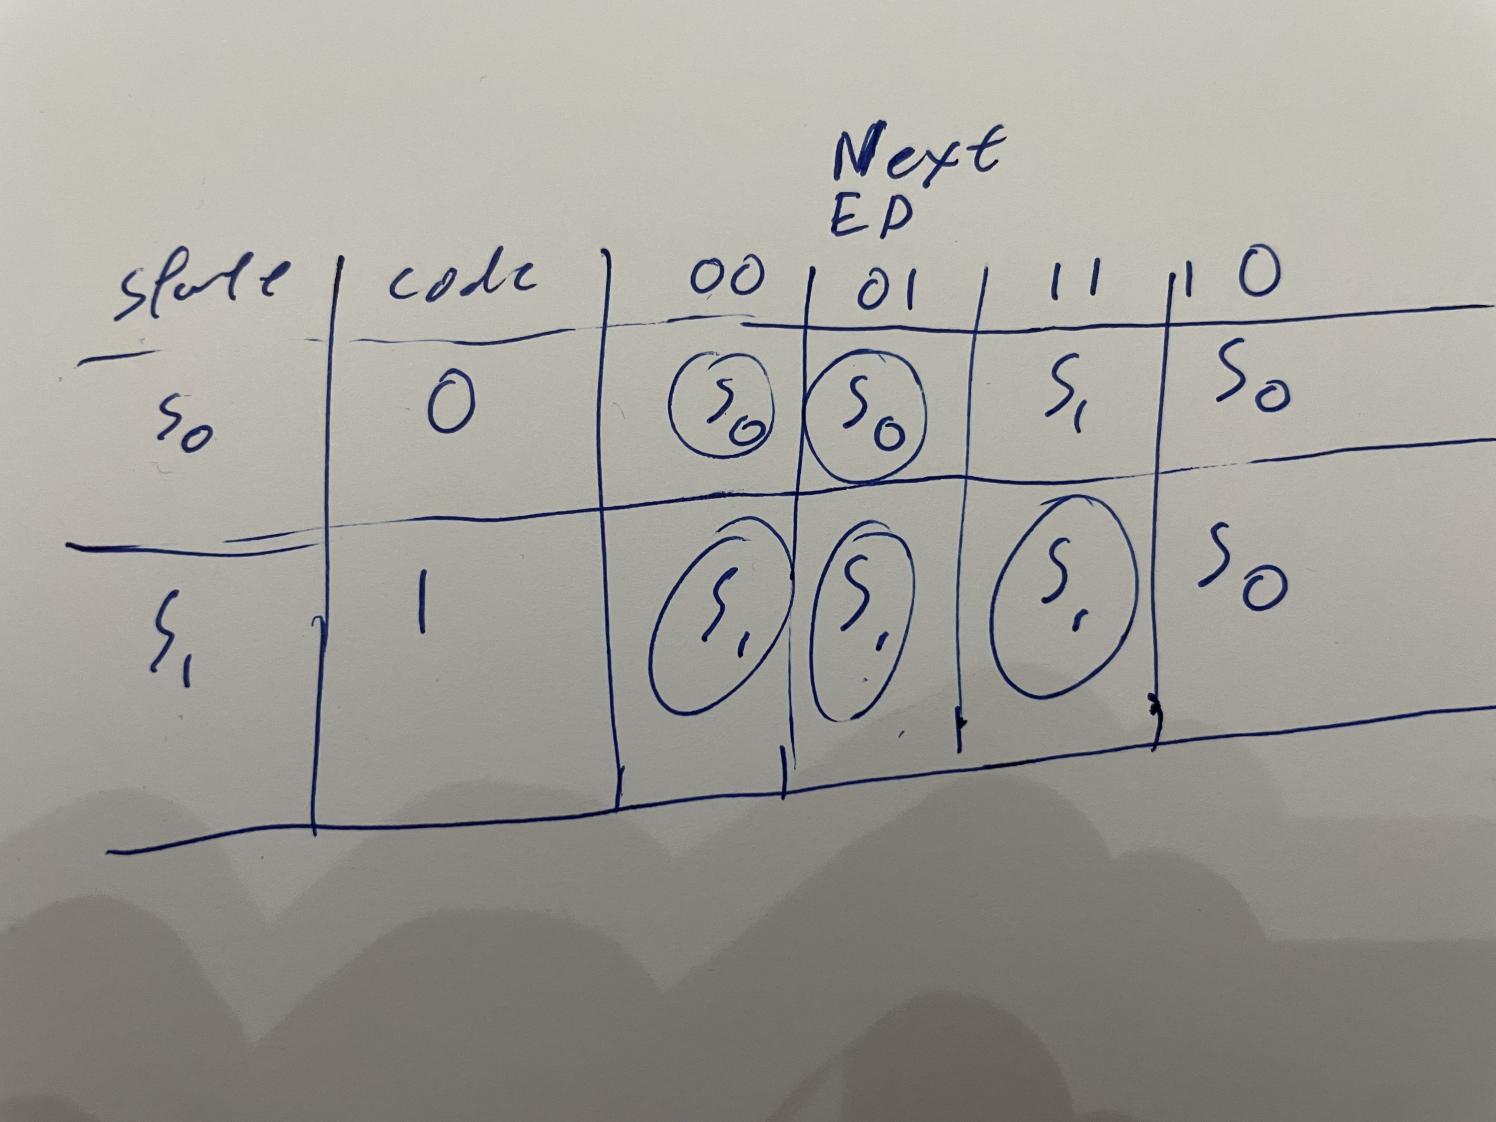 Next
ED
state code 00 01 11 10
S0 0 S0 S0 S1 S0
S1 1 S1 S1 S1 S0